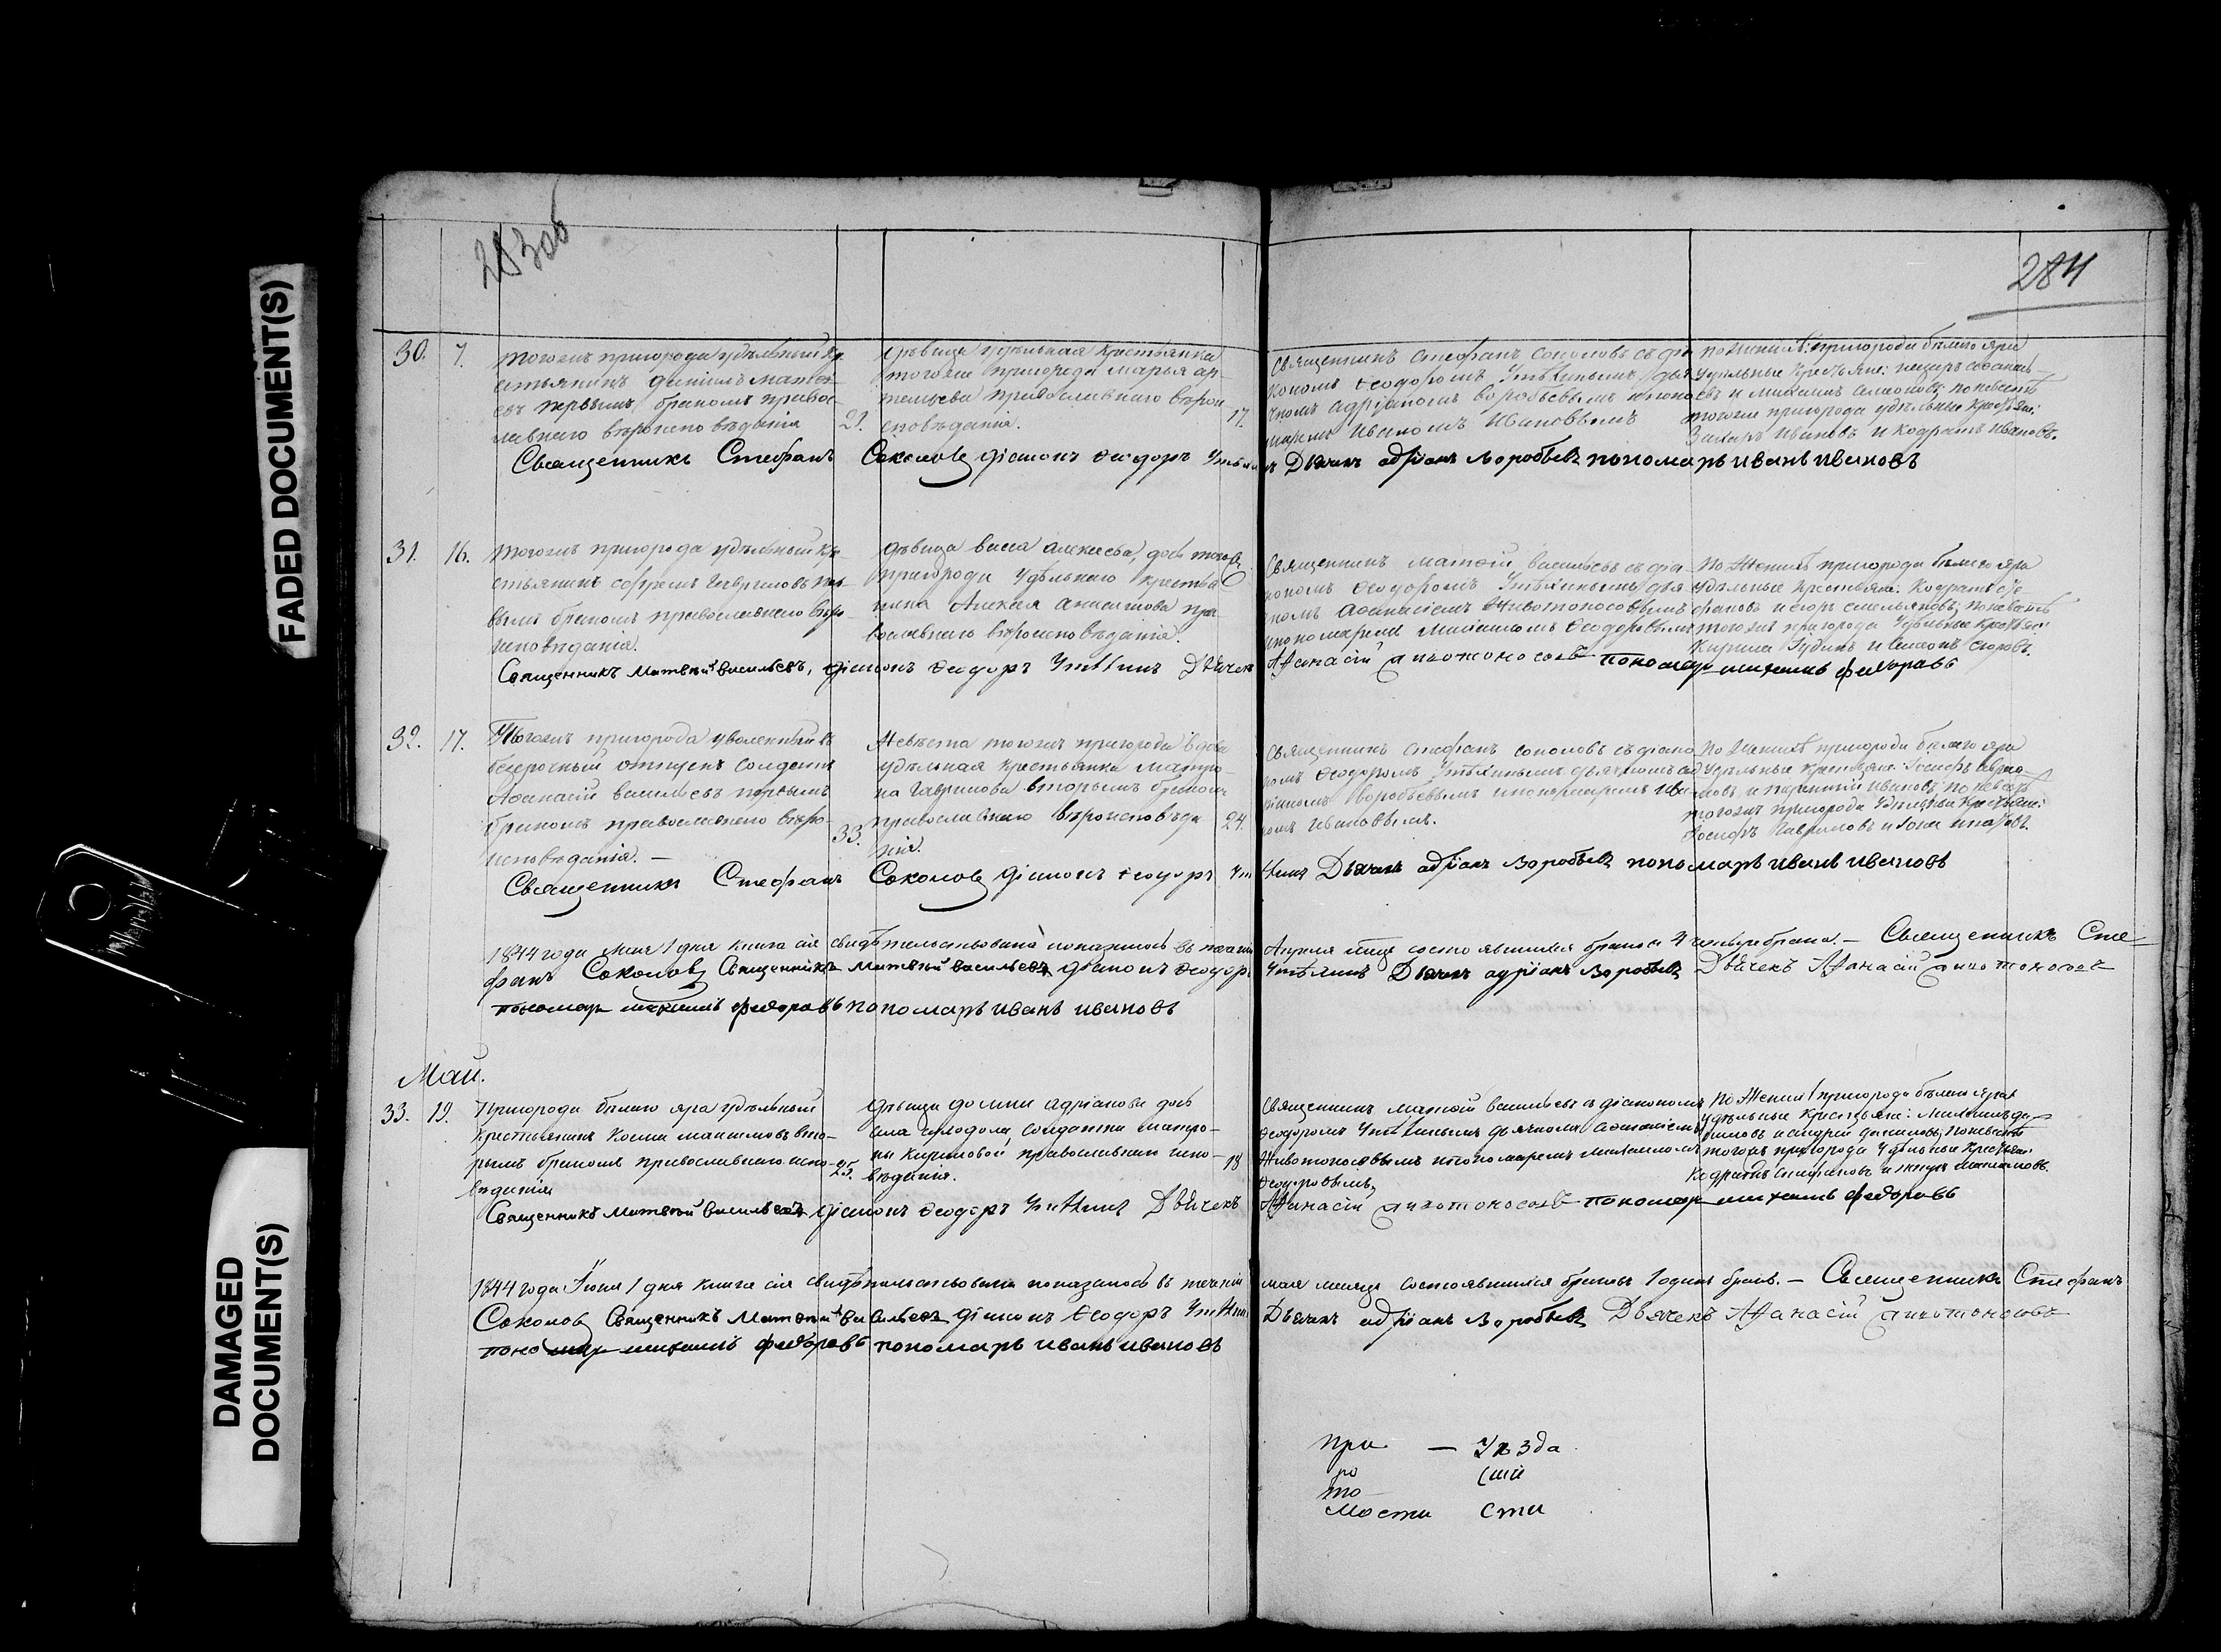 FADED DOCUMENT(S)
DAMAGED
DOCUMENT(S)
283об
284
30. 7.
тогожъ пригорода удѣльный кре-
стьянинъ Данiилъ Матѳе-
евъ первымъ бракомъ правос-
лавнаго вѣроисповѣданiя
21.
дѣвица удѣльная крестьянка
тогоже пригорода Марья Ар-
темьева православнаго вѣрои
сповѣданiя.
17.
Священникъ Стефанъ Соколовъ съ дiа
кономъ Ѳеодоромъ Утѣхинымъ, дья
чкомъ Адрiаномъ Воробьевымъ и поно
маремъ Иваномъ Ивановымъ
По женихѣ: пригорода бѣлаго яра
удѣльные крестьяне:
евъ и Михаилъ Семеновъ; по невестѣ
тогоже пригорода удѣльные крестьяне:
Захаръ Ивановъ и Кодратъ Ивановъ.
Священникъ Стефанъ Соколовъ дiаконъ Ѳеодоръ Утѣхинъ Дьячекъ адрiанъ Воробьевъ пономарь иванъ ивановъ
31. 16.
Тогожъ пригорода удѣльный кре-
стьянинъ Ефремъ Гавриловъ пер-
вымъ бракомъ православнаго вѣро-
исповѣданiя.
дѣвица Васса Алексѣева, дочь тогожъ
пригорода удѣльнаго крестья
нина Алексѣя Анисимова пра
вославнаго вѣроисповѣданiя.
Священникъ Матѳей Васильевъ съ дiа
кономъ Ѳеодоромъ Утѣхинымъ дья
чкомъ Аѳанасiемъ Животоносовымъ
и пономаремъ Михаиломъ Ѳеодоровымъ
По Женихѣ пригорода бѣлаго яра
удѣльные крестьяне: Кодратъ Сте-
фановъ и Егоръ Емельяновъ; по невестѣ
тогожъ пригорода Удѣльные крестьяне:
Кирила Гудинъ и Симонъ Егоровъ.
Священникъ Матвѣй Васильевъ, дiаконъ Ѳеодоръ Утѣхинъ Дьячекъ Аѳанасiй Животоносовъ пономарь михаилъ федоровъ
32. 17.
Тогожъ пригорода уволенный въ
безсрочный отпускъ солдатъ
Аѳанасiй Васильевъ первымъ
бракомъ православнаго вѣро-
исповѣданiя. —
33.
Невѣста тогожъ пригорода вдова
удѣльная крестьянка Матро-
на Гаврилова вторымъ бракомъ
православнаго вѣроисповѣда
нiя.
24.
Священникъ Стефанъ Соколовъ съ дiако
номъ Ѳеодоромъ Утѣхинымъ дьячкомъ Ад
рiаномъ Воробьевымъ и пономаремъ Ива
номъ Ивановымъ.
По Женихѣ пригорода бѣлаго яра
Удѣльные крестьяне: Iосифъ
и Ивановъ; по невѣстѣ
тогожъ пригорода Удѣльные крестьяне:
Iосифъ Гавриловъ и
Священникъ Стефанъ Соколовъ дiаконъ Ѳеодоръ Утѣхинъ Дьячекъ адрiанъ Воробьевъ пономарь иванъ ивановъ
1844 года Мая 1 дня книга сiя свидѣтельствована показалось въ теченiи Апреля м-ца состоявшихся браковъ 4 четыре брака. — Священникъ Сте-
фанъ Соколовъ Священникъ Матвѣй Васильевъ дiаконъ Ѳеодоръ Утѣхинъ Дьячекъ адрiанъ Воробьевъ Дьячекъ Аѳанасiй Животоносовъ
пономарь михаилъ федоровъ пономарь иванъ ивановъ
Маи.
33. 19.
Пригорода бѣлаго яра удѣльный
крестьянинъ Косма Максимовъ вто-
рымъ бракомъ православнаго испо-
вѣданiя
25.
дѣвица Домна Адрiанова дочь
села солдатки Матро-
ны Кириловой православнаго испо-
вѣданiя.
18
Священникъ Матѳей Васильевъ съ дiакономъ
Ѳеодоромъ Утѣхинымъ дьячкомъ Аѳанасiемъ
Животоносовымъ и пономаремъ Михаиломъ
Ѳеодоровымъ
По Женихѣ пригорода бѣлаго яра
удѣльные крестьяне: Михаилъ Да-
ниловъ и Андрей Даниловъ; по невѣстѣ
тогожъ пригорода Удѣльные крестьяне:
Кодратъ Стефановъ и Максимовъ.
Священникъ Матвѣй Васильевъ дiаконъ Ѳеодоръ Утѣхинъ Дьячекъ Аѳанасiй Животоносовъ пономарь михаилъ федоровъ
1844 года Iюня 1 дня книга сiя свидѣтельствована показалось въ теченiи мая месяца состоявшихся браковъ 1 одинъ бракъ. — Священникъ Стефанъ
Соколовъ Священникъ Матвѣй Васильевъ дiаконъ Ѳеодоръ Утѣхинъ Дьячекъ адрiанъ Воробьевъ Дьячекъ Аѳанасiй Животоносовъ
пономарь михаилъ федоровъ пономарь иванъ ивановъ
При — Уѣзда
ро сiй
то
Мости сти